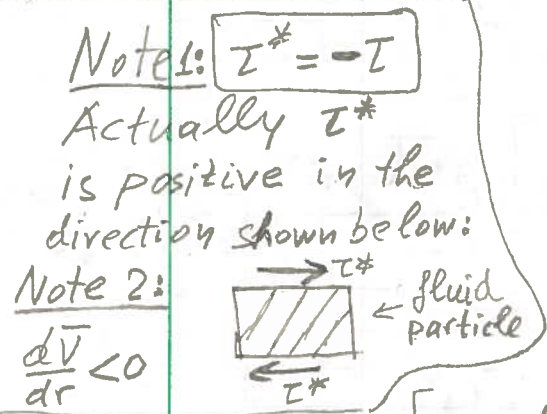 Note 1: τ* = -τ
Actually τ*
is positive in the
direction shown below:
τ*
Note 2:
fluid
particle
dV̅/dr < 0
τ*